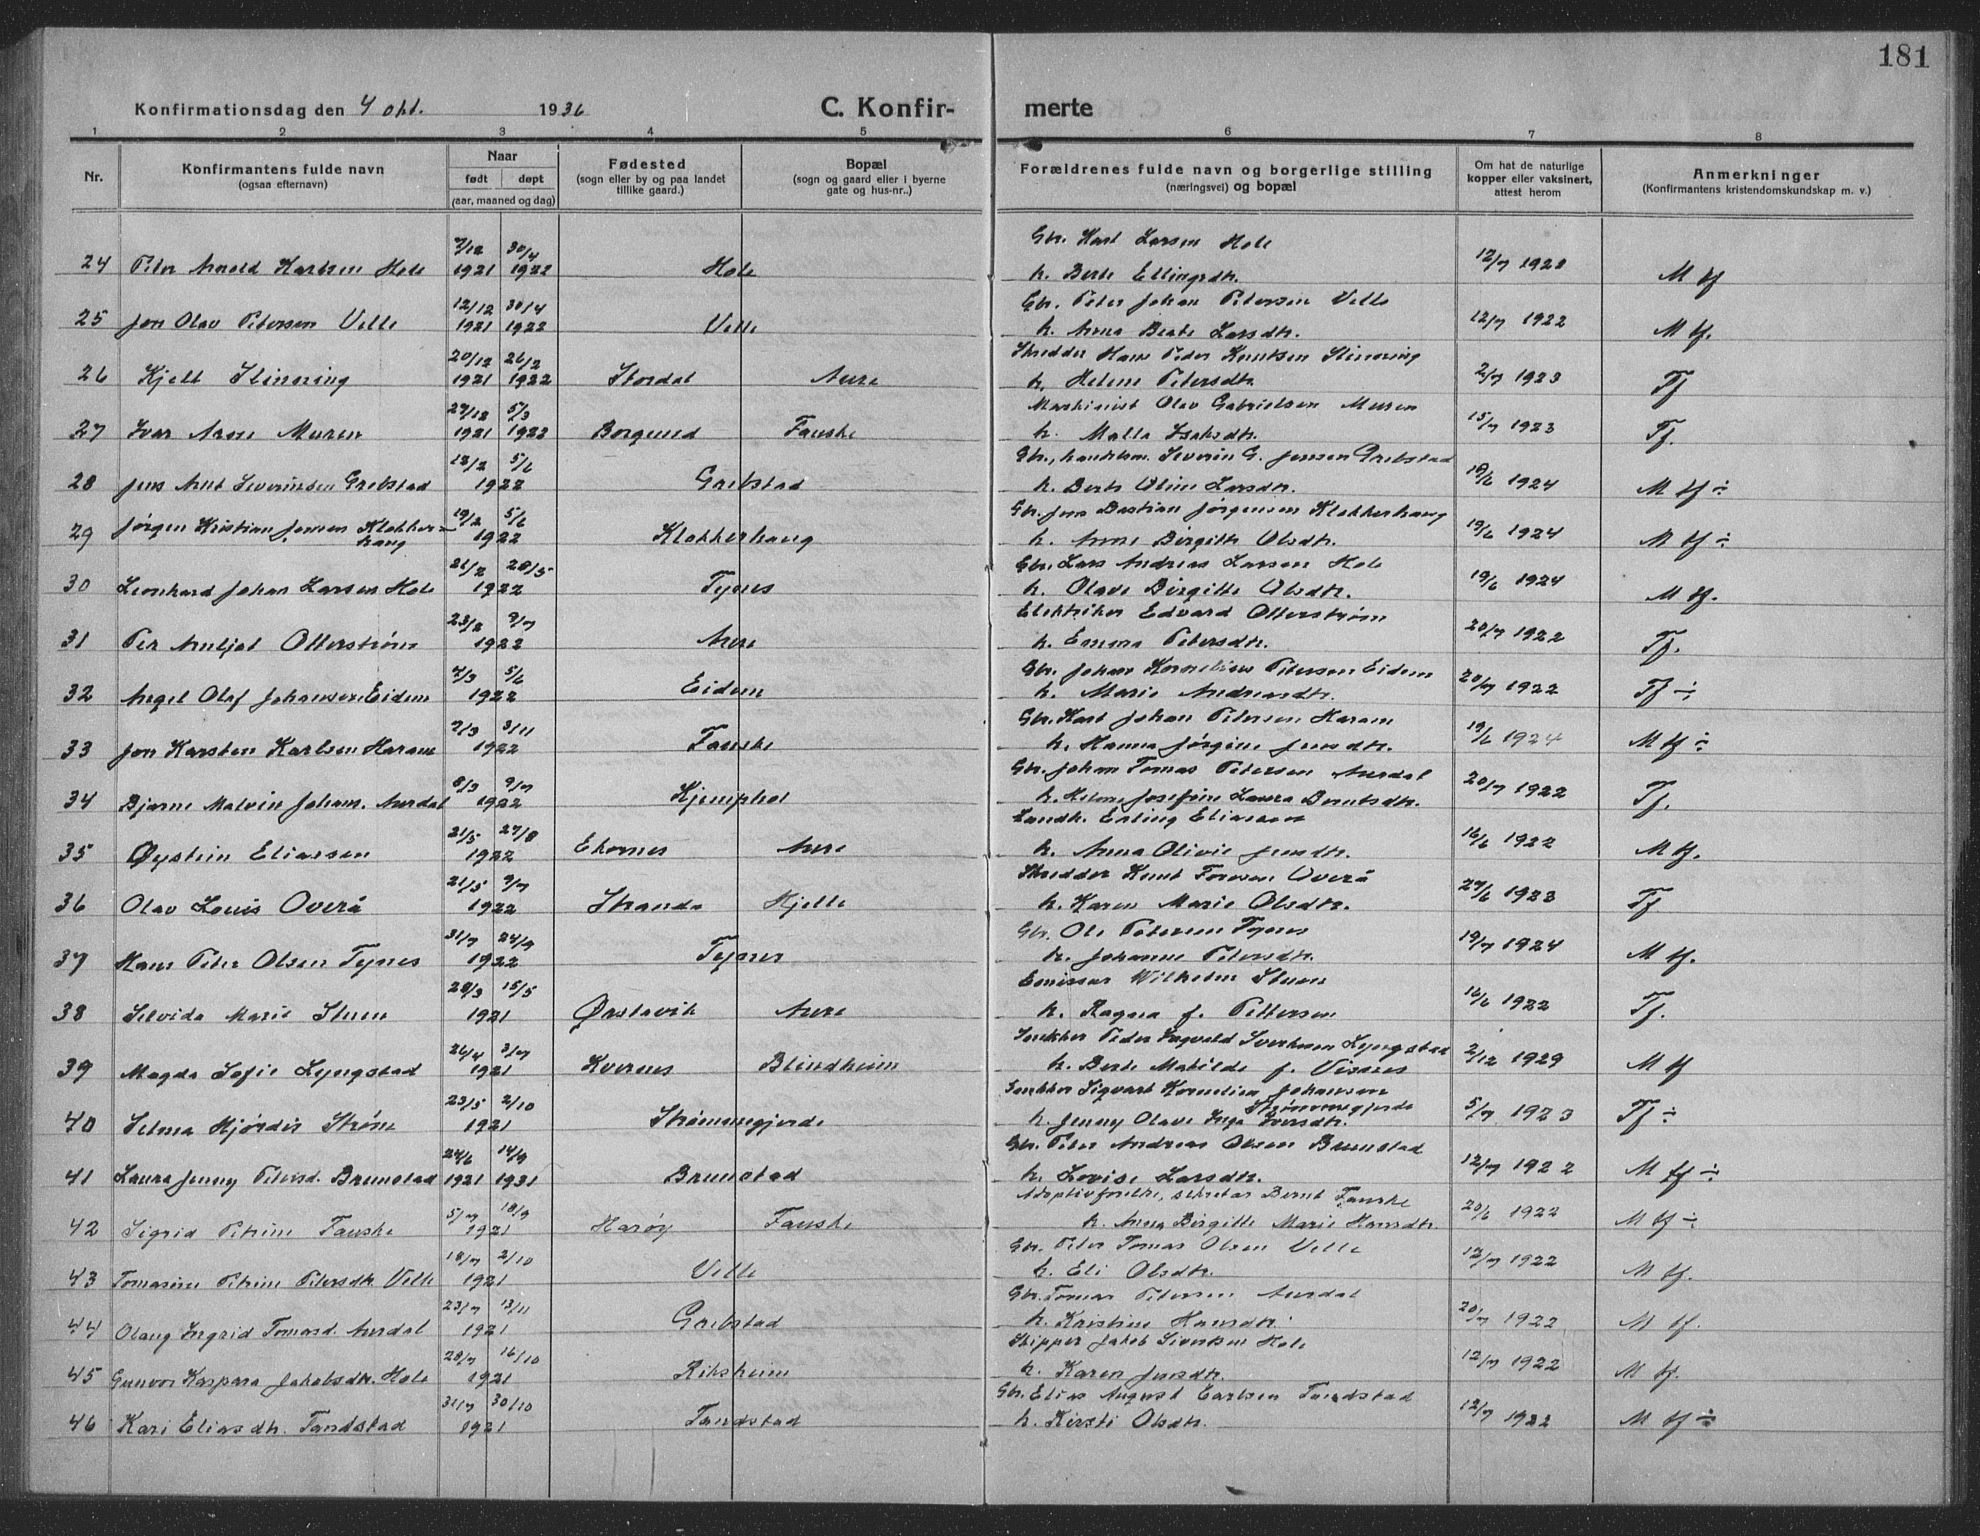 181
Konfirmationsdag den 4 okt. 1936 C. Konfir- merte
1 2 3 4 5 6 7 8
Nr. Konfirmantens fulde navn (ogsaa efternavn) Naar født døpt (aar, maaned og dag) Fødested (sogn eller by og paa landet tillike gaard.) Bopæl (sogn og gaard eller i byerne gate og hus-nr..) Forældrenes fulde navn og borgerlige stilling (næringsvei) og bopæl Om hat de naturlige kopper eller vaksinert, attest herom Anmerkninger (Konfirmantens kristendomskundskap m. v.)
Gbr. Karl Larsen Hole
24 Peter Arnold Karlsen Hole 7/12 1921 30/4 1922 Hole h. Berte Ellingsdtr. 12/7 1928 M tf
Gbr. Peter Johan Petersen Velle
25 Jon Olav Petersen Velle 12/12 1921 30/4 1922 Velle h. Anna Beate Larsdtr. 12/7 1922 M tf.
Skredder Hans Peder Knutsen Stinessing
26 Kjell 20/12 1921 26/2 1922 Stordal Aure h. Helene Petersdtr. 2/7 1923 Tf
Maskinist Olav Gabrielsen Muren
27 Ivar Arne Muren 27/12 1921 5/3 1922 Borgund Fauske h. Malla Isaksdtr. 15/7 1923 Tf.
Gbr., Severin G. Jensen Grebstad
28 Jens Arnt Severinsen Grebstad 12/2 5/6 1922 Grebstad h. Berte Oline Larsdtr. 19/6 1924 M tf ÷
Gbr. Jens Bastian Jørgensen Klokkerhaug
29 Jørgen Kristian Jensen Klokker-haug 19/2 5/6 1922 Klokkerhaug h. Anne Birgitte Olsdtr. 19/6 1924 M tf ÷
Gbr. Lars Andreas Larsen Hole
30 Leonhard Johan Larsen Hole 21/2 28/5 1922 Tynes h. Olave Birgitte Olsdtr. 19/6 1924 M tf.
Elektriker Edvard Otterstrøm
31 Per Arnljot Otterstrøm 23/2 9/7 1922 Aure h. Emma Petersdtr. 20/7 1922 Tf.
Gbr. Johan Kornelius Petersen Eidem
32 Angel Olaf Johansen Eidem 4/3 5/6 1922 Eidem h. Marie Andreasdtr. 20/7 1922 Tf ÷
Gbr. Karl Johan Petersen Haram
33 Jon Karsten Karlsen Haram 7/3 3/11 1922 Fauske h. Hanna Jørgine Jensdtr. 19/6 1924 M tf ÷
Gbr. Johan Tomas Petersen Aurdal
34 Bjarne Malvin Johans. Aurdal 8/3 9/7 1922 Kjemphol h. Helene Josefine Laura Berntsdtr. 20/7 1922 Tf.
Landh. Erling Eliassen
35 Øystein Eliassen 21/5 27/8 1922 Ekornes Aure h. Anna Olivie Jensdtr. 16/6 1922 M tf.
Skredder Knut Toresen Overå
36 Olav Louis Overå 21/5 9/7 1922 Stranda Hjelle h. Karen Marie Olsdtr. 27/6 1923 Tf.
Gbr. Ole Petersen Tynes
37 Hans Peter Olsen Tynes 31/7 24/9 1922 Tynes h. Johanne Petersdtr. 19/7 1924 M tf.
Emissær Wilhelm Stuen
38 Selvida Marie Stuen 28/3 15/5 1921 Ørstavik Aure h. Ragna f. Pettersen 16/6 1922 Tf.
Snekker Peder Ingvald Sverksen Lyngstad
39 Magda Sofie Lyngstad 26/4 3/7 1921 Kvernes Blindheim h. Berte Matilde f. Visnes 2/12 1929 M tf
Snekker Sigvart Kornelius Johansen
40 Selma Hjørdis Strøm 23/5 2/10 1921 Strømmegjerde h. Jenny Olave Inga Iversdtr. Strømmegjerde 5/7 1923 Tf ÷
Gbr. Peter Andreas Olsen Brunstad
41 Laura Jenny Petersd. Brunstad 24/6 1921 14/9 1931 Brunstad h. Lovise Larsdtr. 12/7 1922 M tf ÷
Adoptivforeldre, sekretær Bernt Fauske
42 Sigrid Petrine Fauske 5/7 18/9 1921 Harøy Fauske h. Anna Birgitte Marie Hansdtr. 20/6 1922 M tf ÷
Gbr. Peter Tomas Olsen Velle
43 Tomasine Petrine Petersdtr. Velle 18/7 2/10 1921 Velle h. Eli Olsdtr. 12/7 1922 M tf.
Gbr. Tomas Petersen Aurdal
44 Olaug Ingrid Tomasd. Aurdal 23/7 13/11 1921 Grebstad h. Kristine Hansdtr. 20/7 1922 M tf.
Skipper Jakob Sivertsen Hole
45 Gunvor Kaspara Jakobsdtr. Hole 28/7 16/10 1921 Riksheim h. Karen Jensdtr. 12/7 1922 M tf.
Gbr. Elias August Carlsen Tandstad
46 Kari Eliasdtr. Tandstad 31/7 30/10 1921 Tandstad h. Kirsti Olsdtr. 12/7 1922 M tf ÷